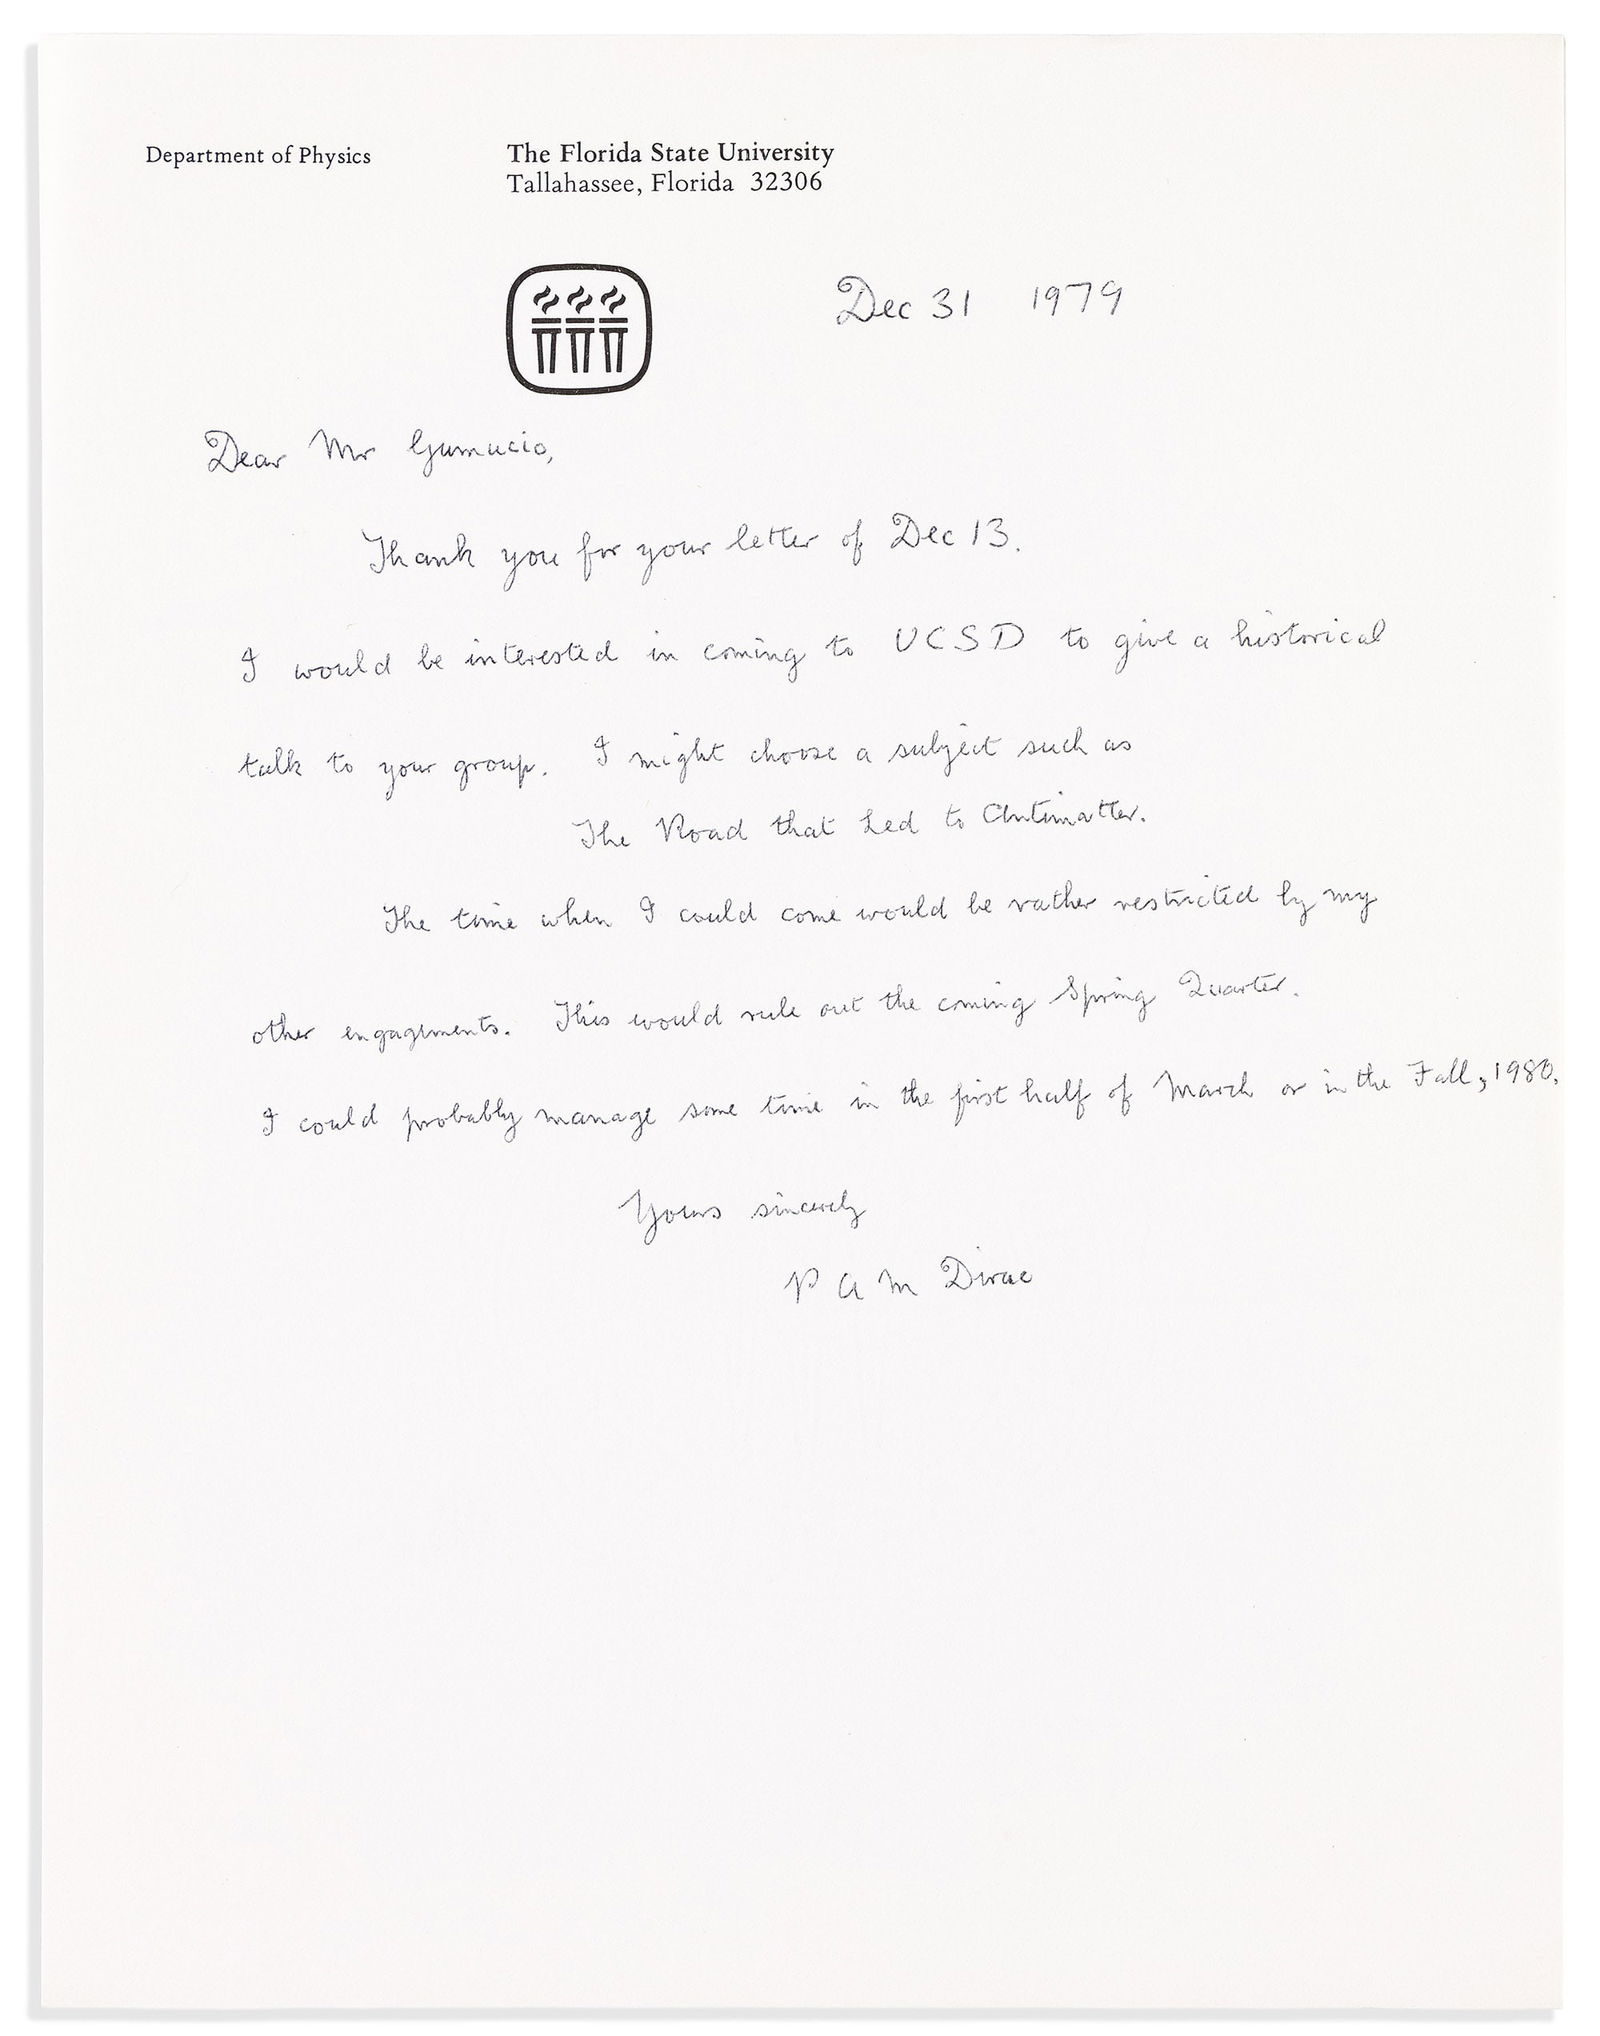 Department of Physics
The Florida State University
Tallahassee, Florida 32306
Dec 31 1979
Dear Mr Gumucio,
Thank you for your letter of Dec 13.
I would be interested in coming to UCSD to give a historical
talk to your group. I might choose a subject such as
The Road that Led to Antimatter.
The time when I could come would be rather restricted by my
other engagements. This would rule out the coming Spring Quarter.
I could probably manage some time in the first half of March or in the Fall, 1980.
Yours sincerely
P A M Dirac